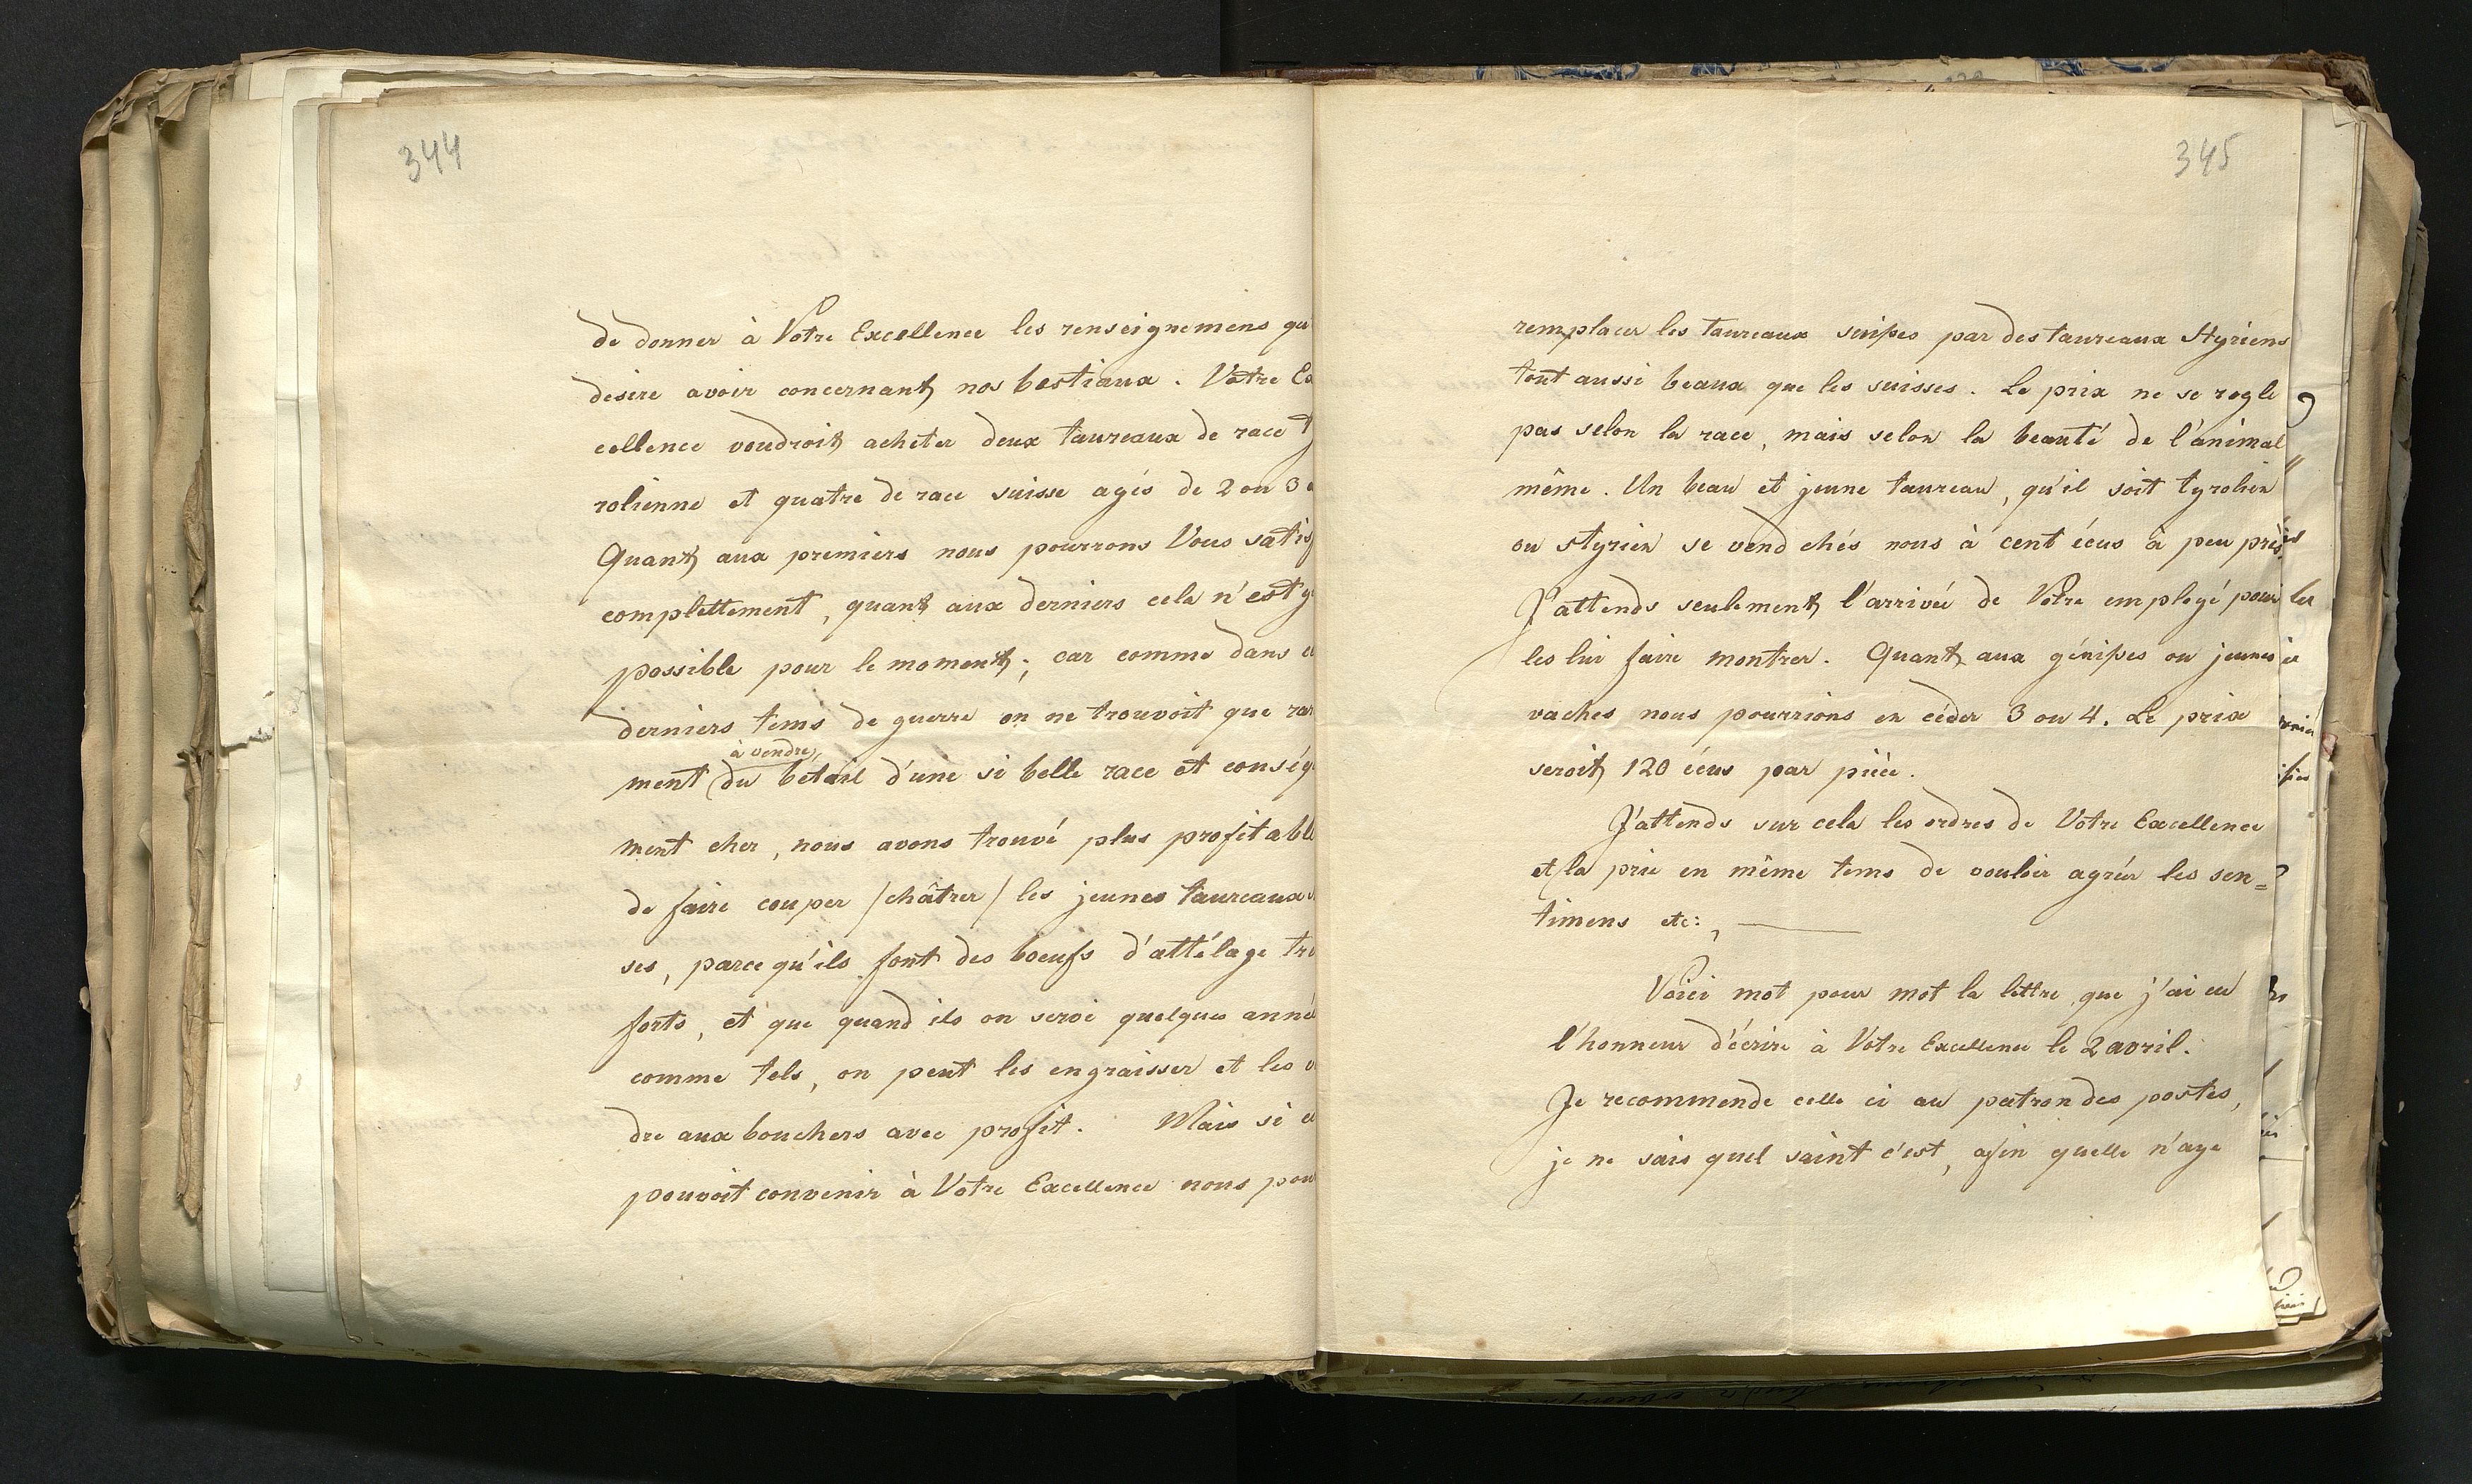 344
de donner à Votre Excellence les renseignemens qu
desire avoir concernant nos bestiaux. Votre Ex
cellence voudroit acheter deux taureaux de race ty
rolienne et quatre de race suisse agés de 2 ou 3 a
Quant aux premiers nous pourrons Vous satisf
complettement, quant aux derniers cela n'est g
possible pour le moment; car comme dans c
derniers tems de guerre on ne trouvoit que rar
à vendre
ment du bétail d'une si belle race et conség
ment cher, nous avons trouvé plus profitable
de faire couper /châtrer/ les jeunes taureaux s
ses, parce qu'ils font des boeufs d'attélage trè
forts, et que quand ils on servi quelques anné
comme tels, on peut les engraisser et les v
dre aux bouchers avec profit. Mais si c
pouvoit convenir à Votre Excellence nous pour
345
remplacer les taureaux suisses par des taureaux Styriens
tout aussi beaux que les suisses. Le prix ne se regle
pas selon la race, mais selon la beauté de l'animal
même. Un beau et jeune taureau, qu'il soit tyrolien
ou styrien se vend chés nous à cent écus à peu près.
J'attends seulement l'arrivée de Votre employé pour
les lui faire montrer. Quant aux génisses ou jeunes
vaches nous pourrions en céder 3 ou 4. Le prix
seroit 120 écus par pièce.
J'attends sur cela les ordres de Votre Excellence
et la prie en même tems de vouloir agréer les sen=
timens etc:, —
Voici mot pour mot la lettre que j'ai eu
l'honneur d'écrire à Votre Excellence le 2 avril.
Je recommende celle ci au patron des postes,
je ne sais quel saint c'est, afin quelle n'aye